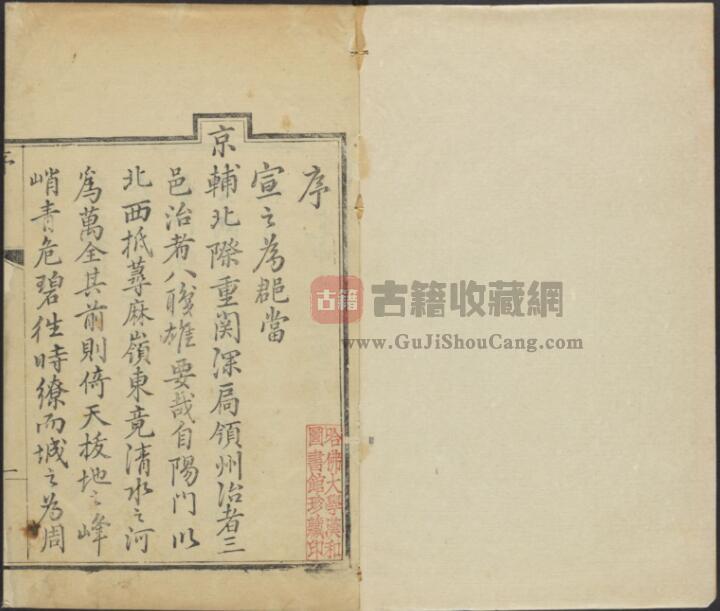 序
宣之為郡當
京輔北際重関深扃領州治者三
邑治者八
雄要哉自陽門以
北西抵蕁麻嶺東竟清水之河
為萬全其前則倚天拔地之峰
峭青危碧徃時繚而城之為周
哈佛大學漢和
圖書館珍藏印
古籍
古籍收藏網
www.GuJiShouCang.com